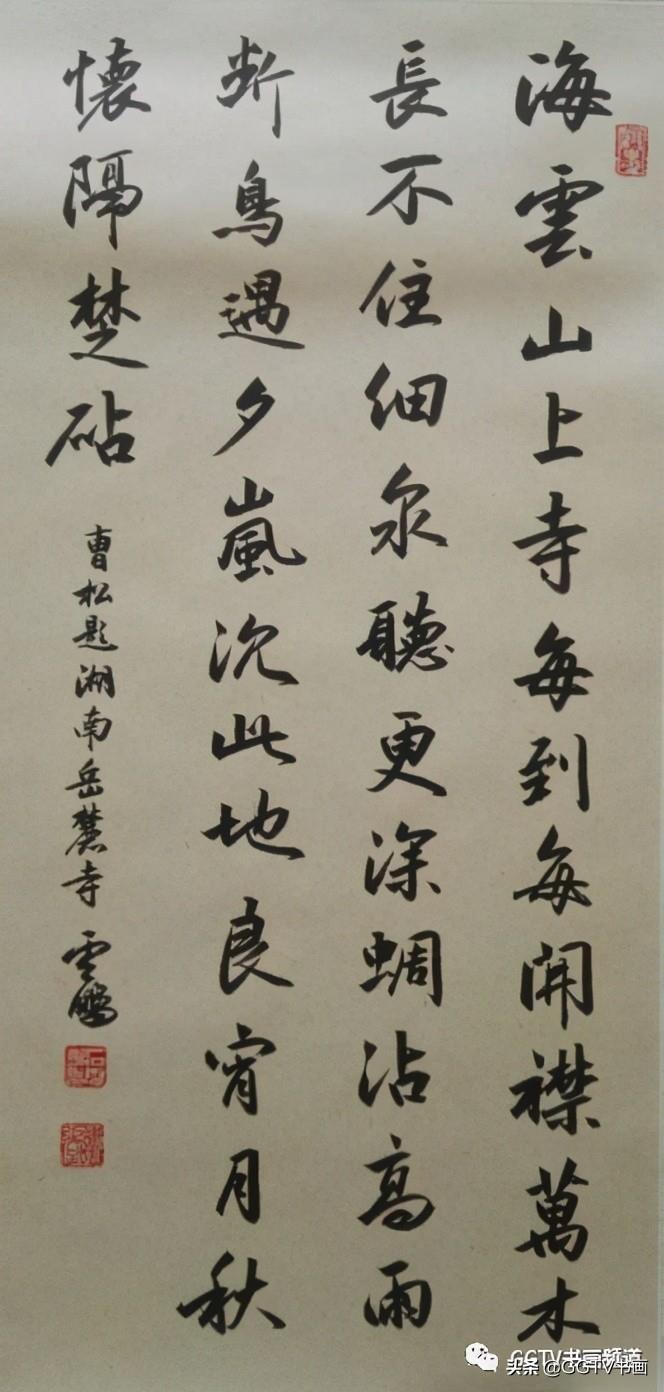 海雲山上寺每到每開襟萬木
長不住細泉聽更深蜩沾高雨
断鳥遇夕嵐沉此地良宵月秋
懷隔楚砧
曹松題湖南岳麓寺 雲鵬
GGTV书画频道
头条 @GGTV书画